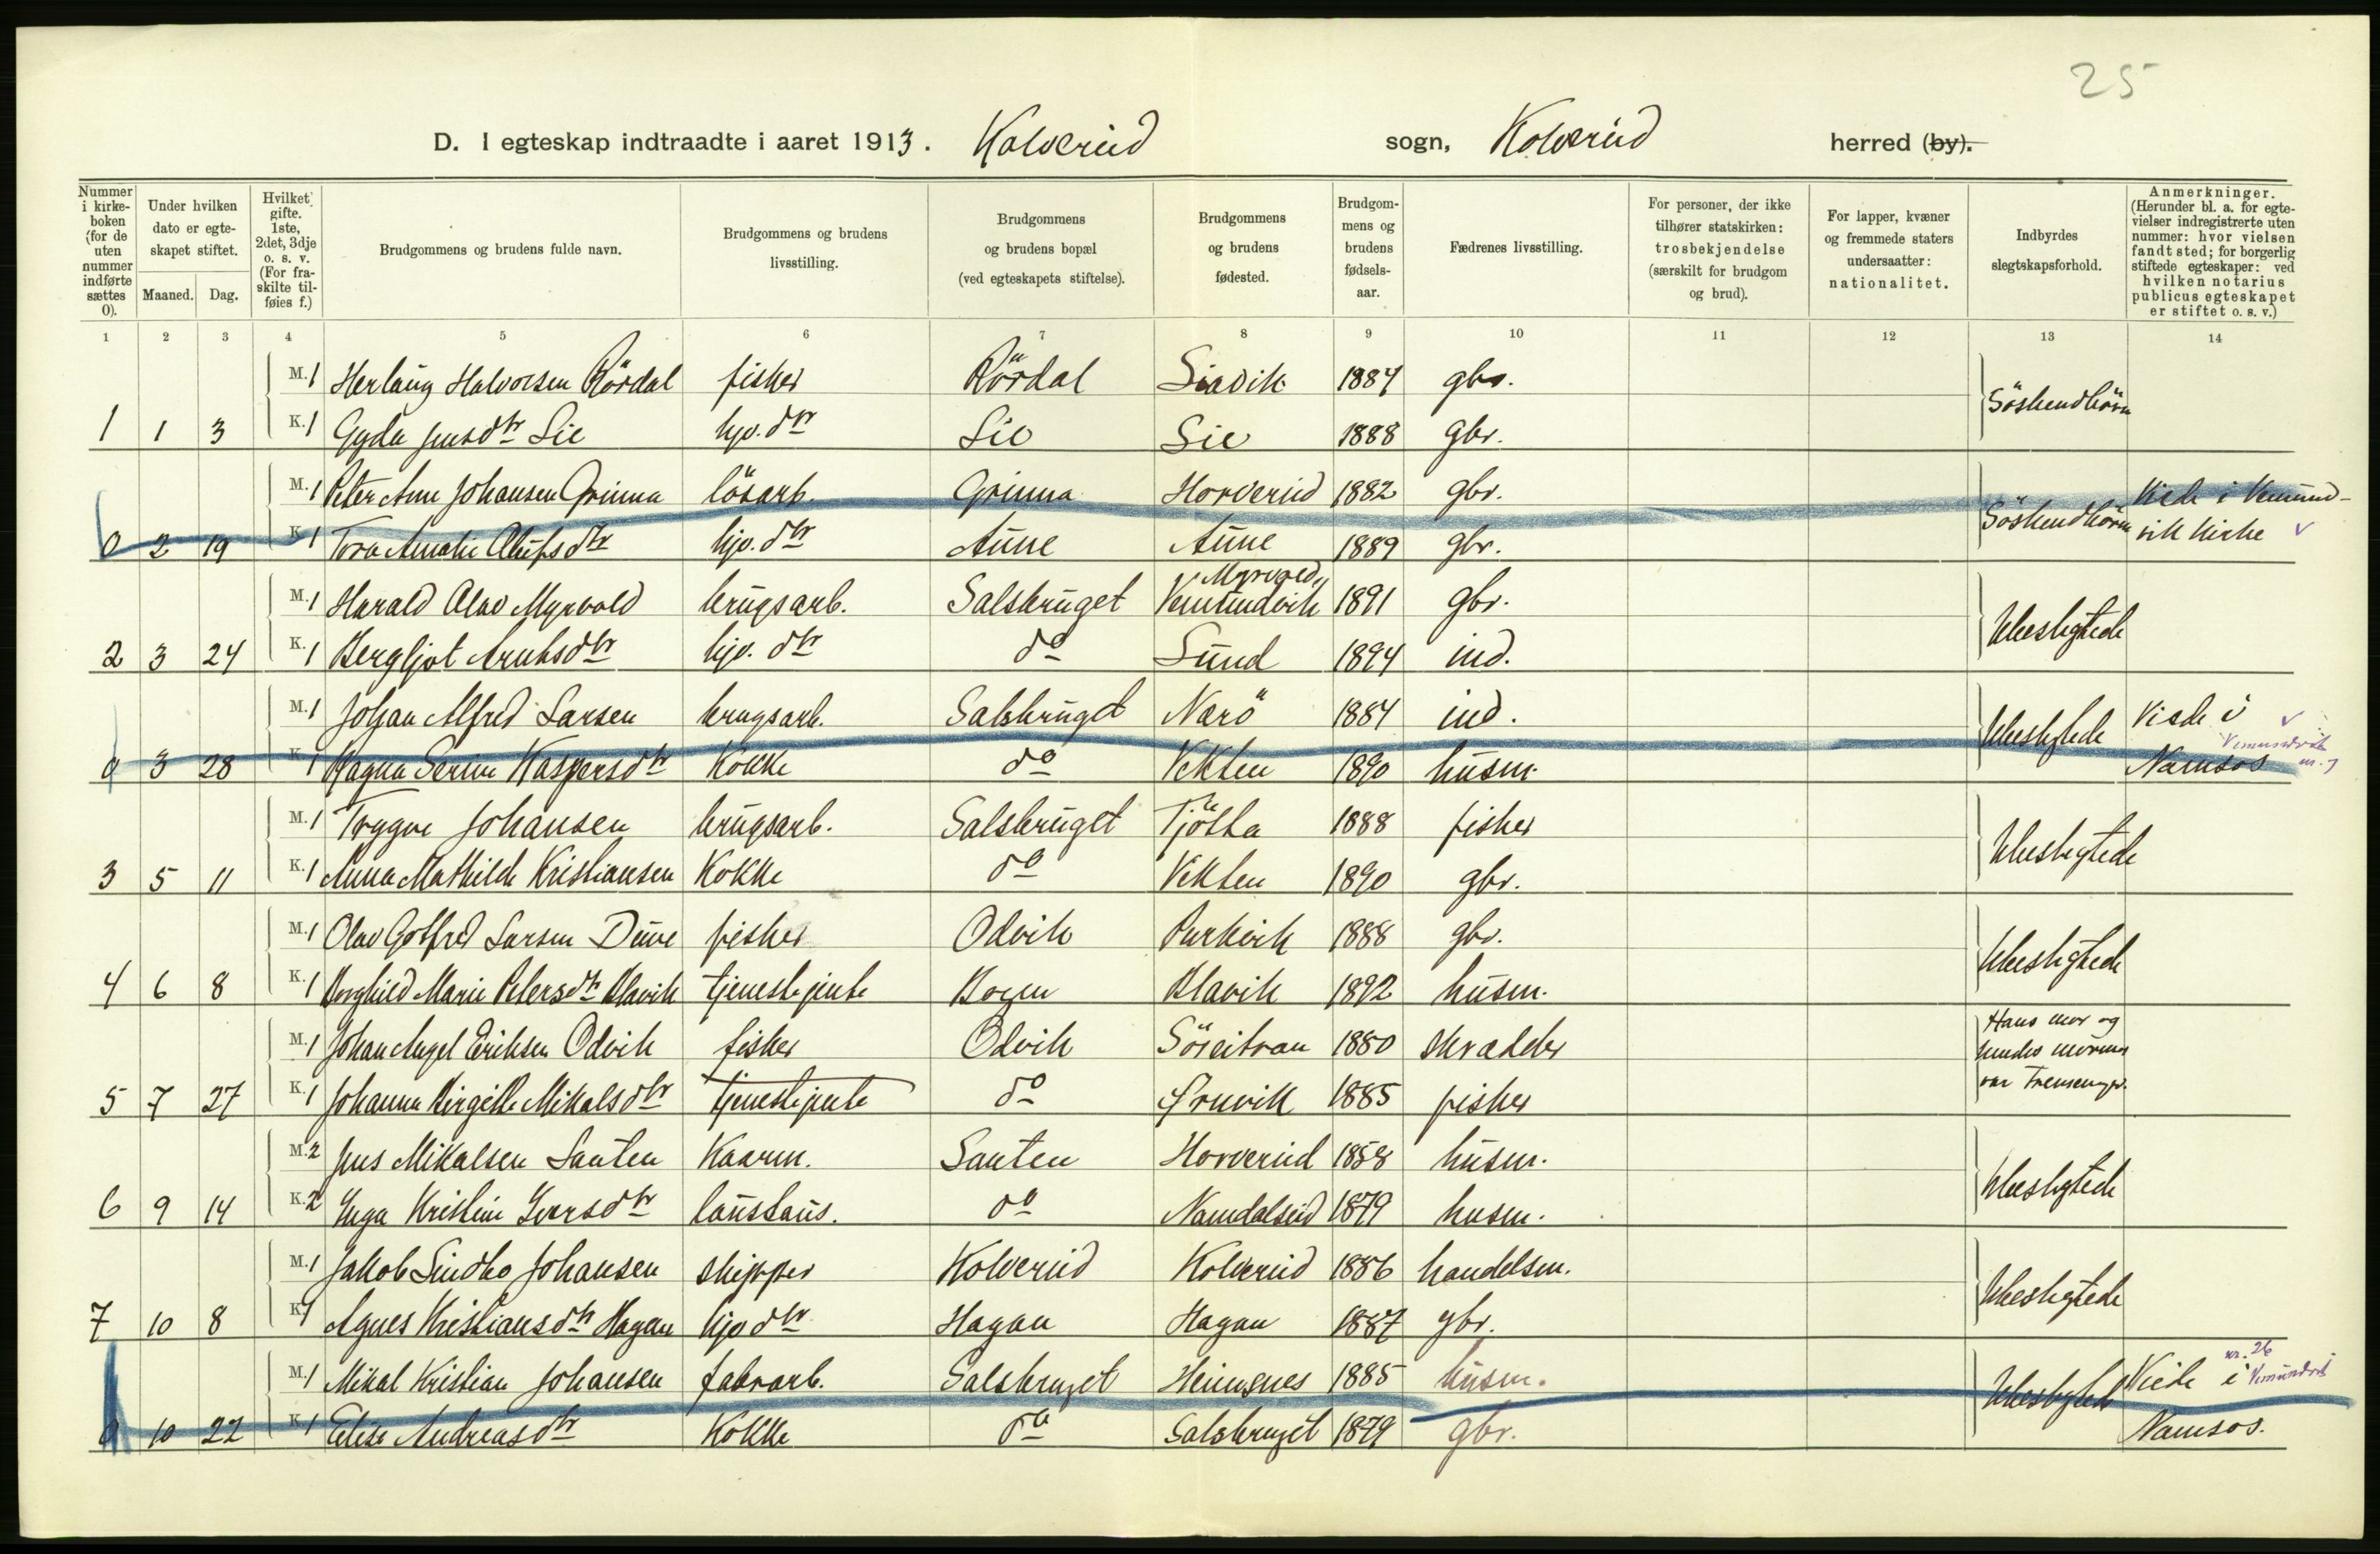 25
D. I egteskap indtraadte i aaret 1913. Kolvereid sogn, Kolvereid herred (by).
Nummer i kirkeboken (for de uten nummer indførte sættes 0).
Under hvilken dato er egteskapet stiftet.
Maaned. Dag.
Hvilket gifte. 1ste, 2det, 3dje o. s. v. (For fraskilte tilføies f.)
Brudgommens og brudens fulde navn.
Brudgommens og brudens livsstilling.
Brudgommens og brudens bopæl (ved egteskapets stiftelse).
Brudgommens og brudens fødested.
Brudgommens og brudens fødselsaar.
Fædrenes livsstilling.
For personer, der ikke tilhører statskirken: trosbekjendelse (særskilt for brudgom og brud).
For lapper, kvæner og fremmede staters undersaatter: nationalitet.
Indbyrdes slegtskapsforhold.
Anmerkninger. (Herunder bl. a. for egtevielser indregistrerte uten nummer: hvor vielsen fandt sted; for borgerlig stiftede egteskaper: ved hvilken notarius publicus egteskapet er stiftet o. s. v.)
1 2 3 4 5 6 7 8 9 10 11 12 13 14
M. 1 Herlaug Halvorsen Rördal fisker Rördal 1884 gbr. Söskendbörn
1 1 3 K. 1 Gyda Jensdtr Lie hjv. dtr Lie Lie 1888 gbr.
M. 1 Peter Arne Johansen Grinna lösarb. Grinna Horvereid 1882 gbr. Söskendbörn Viede i Vemund-
0 2 19 K. 1 Tora Amalie Olufsdtr hjv. dtr Aune Aune 1889 gbr. vik kirke
M. 1 Harald Olav Myrvold brugsarb. Salsbruget Myrvold, Vemundvik 1891 gbr. Ubeslegtede
2 3 24 K. 1 Bergljot Arntsdtr hjv. dtr do Sund 1894 ind.
M. 1 Johan Alfred Larsen brugsarb. Salsbruget Nærö 1884 ind. Ubeslegtede Viede i Vemundvik
0 3 28 K. 1 Ragna Serine Kaspersdtr Kokke do Vikten 1890 husm. Namsos
M. 1 Trygve Johansen brugsarb. Salsbruget Tjötta 1888 fisker Ubeslegtede
3 5 11 K. 1 Anna Mathilde Kristiansen Kokke do Vikten 1890 gbr.
M. 1 Olav Gotfred Larsen Duve fisker Odvik 1888 gbr. Ubeslegtede
4 6 8 K. 1 Borghild Marie Petersdtr Blavik tjenestepinte Bogen Blavik 1892 husm.
M. 1 Johan Angel Eriksen Odvik fisker Odvik Söreitran 1880 skrædder Hans mor og
hendes mormor
var Tremenger.
5 7 27 K. 1 Johanna Birgitte Mikalsdtr tjenestejente do 1885 fisker
M. 2 Jens Mikalsen Sauten Kaarm. Sauten Horvereid 1858 husm. Ubeslegtede
6 9 14 K. 2 Inga Kristine Iversdtr do Namdalseid 1879 husm.
M. 1 Jakob Lindbo Johansen skipper Kolvereid Kolvereid 1886 handelsm. Ubeslegtede
7 10 8 K. 1 Agnes Kristiansdtr Hagan hjv dtr Hagan Hagan 1887 gbr.
M. 1 Mikal Kristian Johansen fabrarb. Salsbruget Heimsnes 1885 husm. Ubeslegted Viede i nr. 26 Vemundvik
0 10 22 K. 1 Elise Andreasdtr Kokke do Salsbruget 1879 gbr. Namsos.